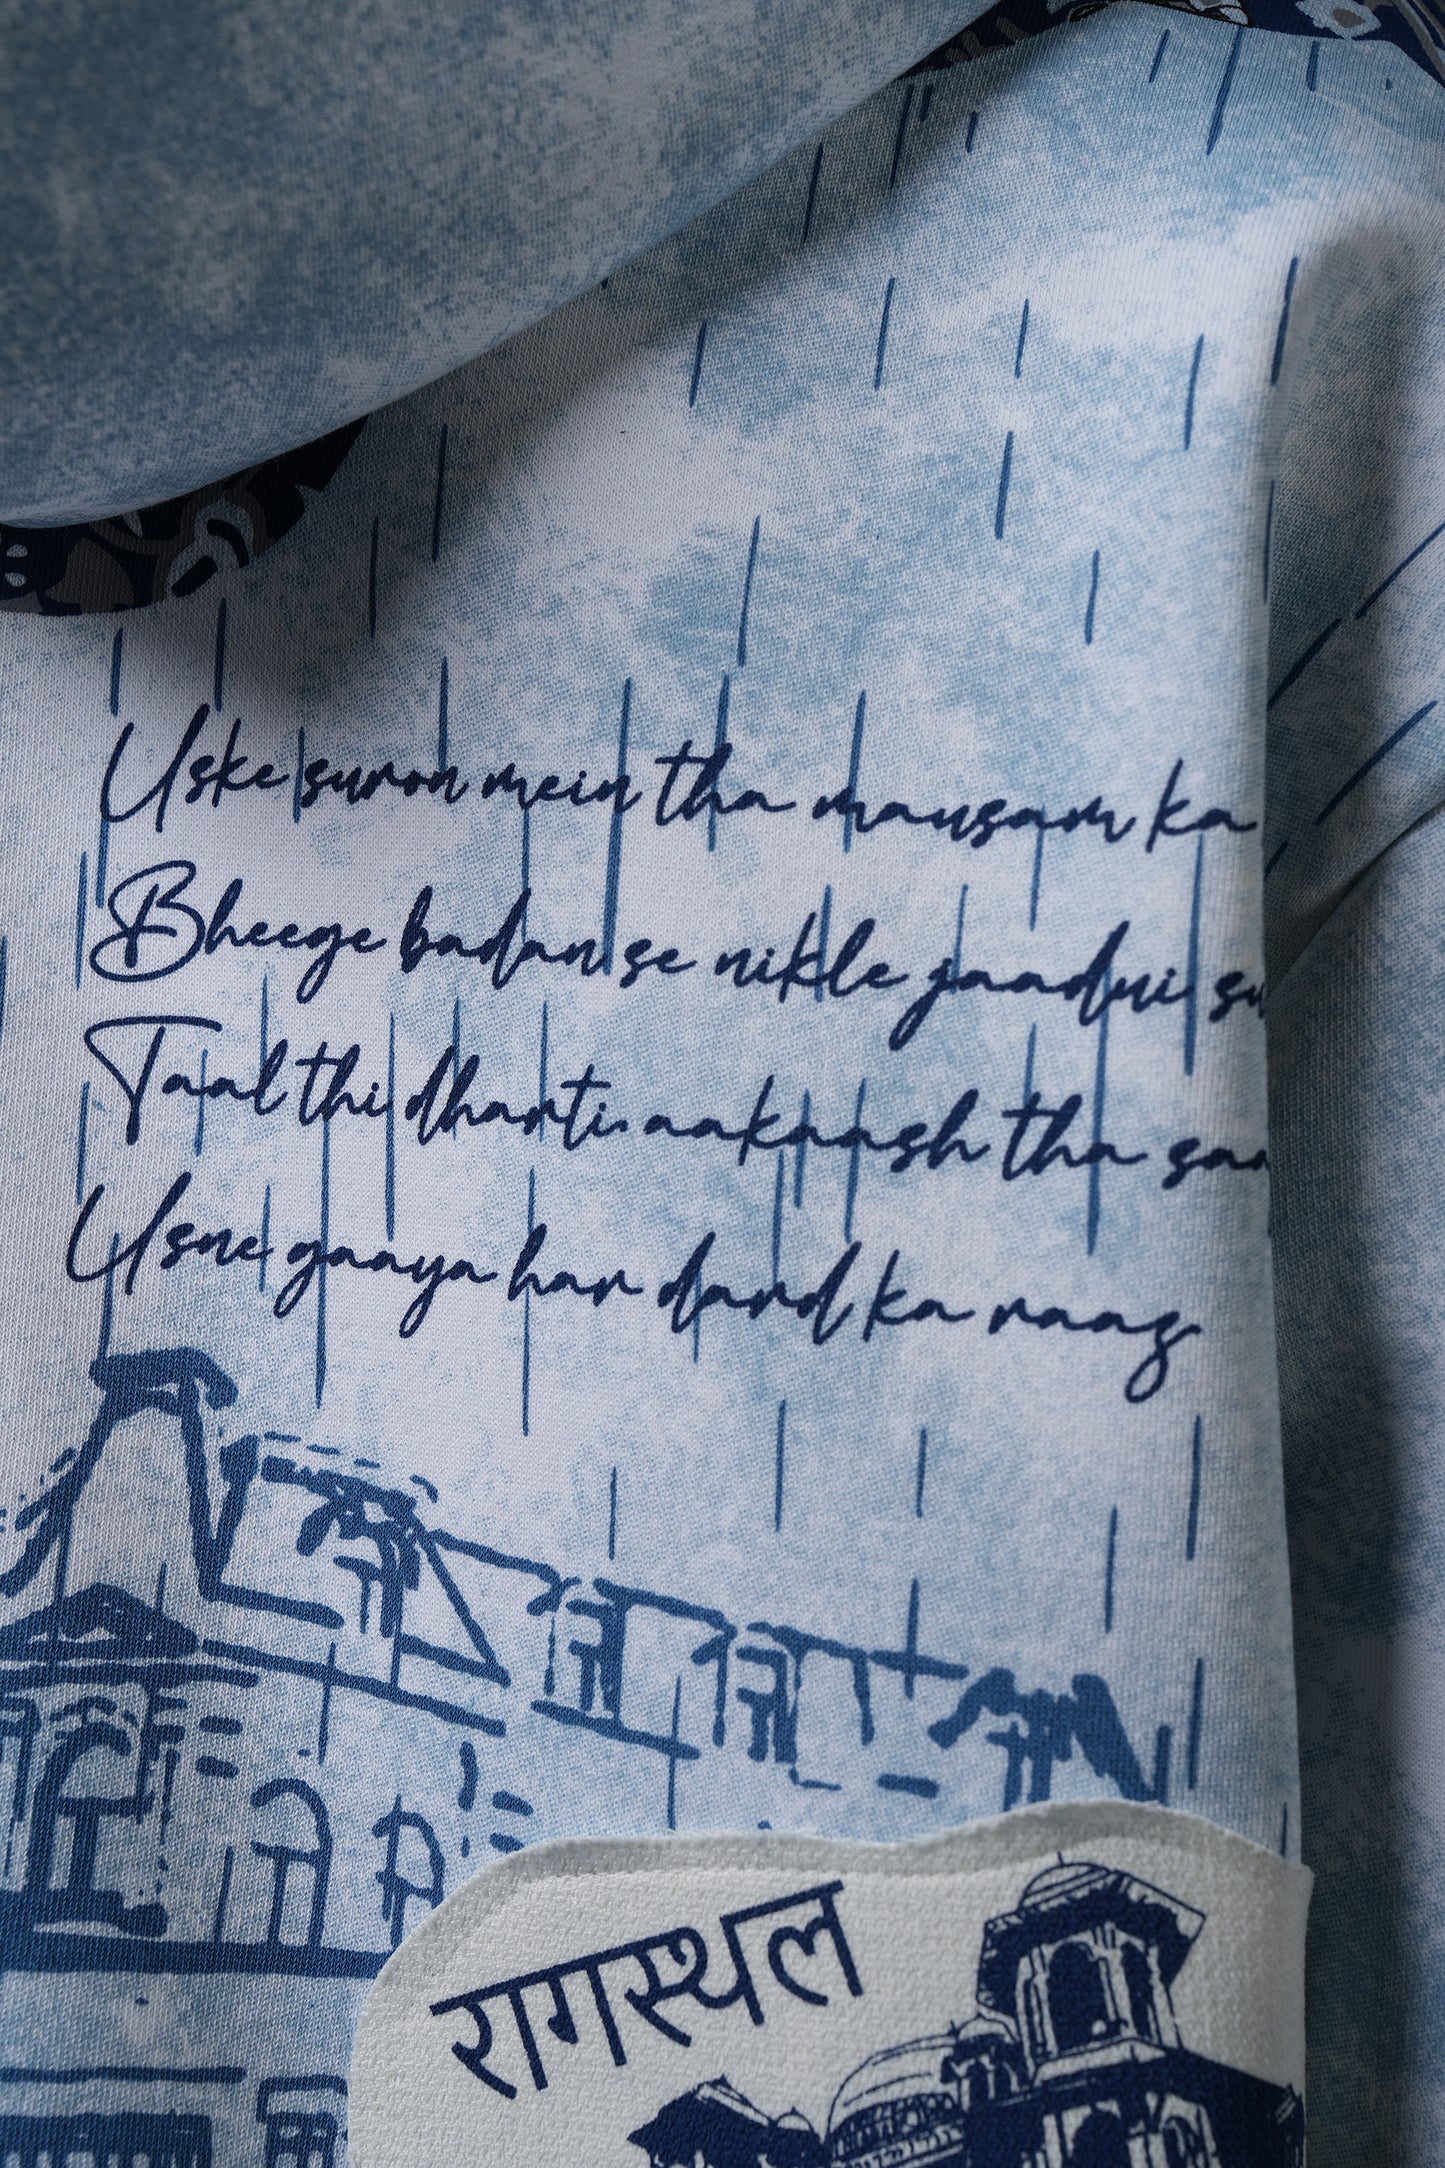 Uske suron mein tha mausam ka
Bheege badan se nikle jaadui
Taal thi dharti aakaash tha
Usne gaaya har dard ka raag
रागस्थल